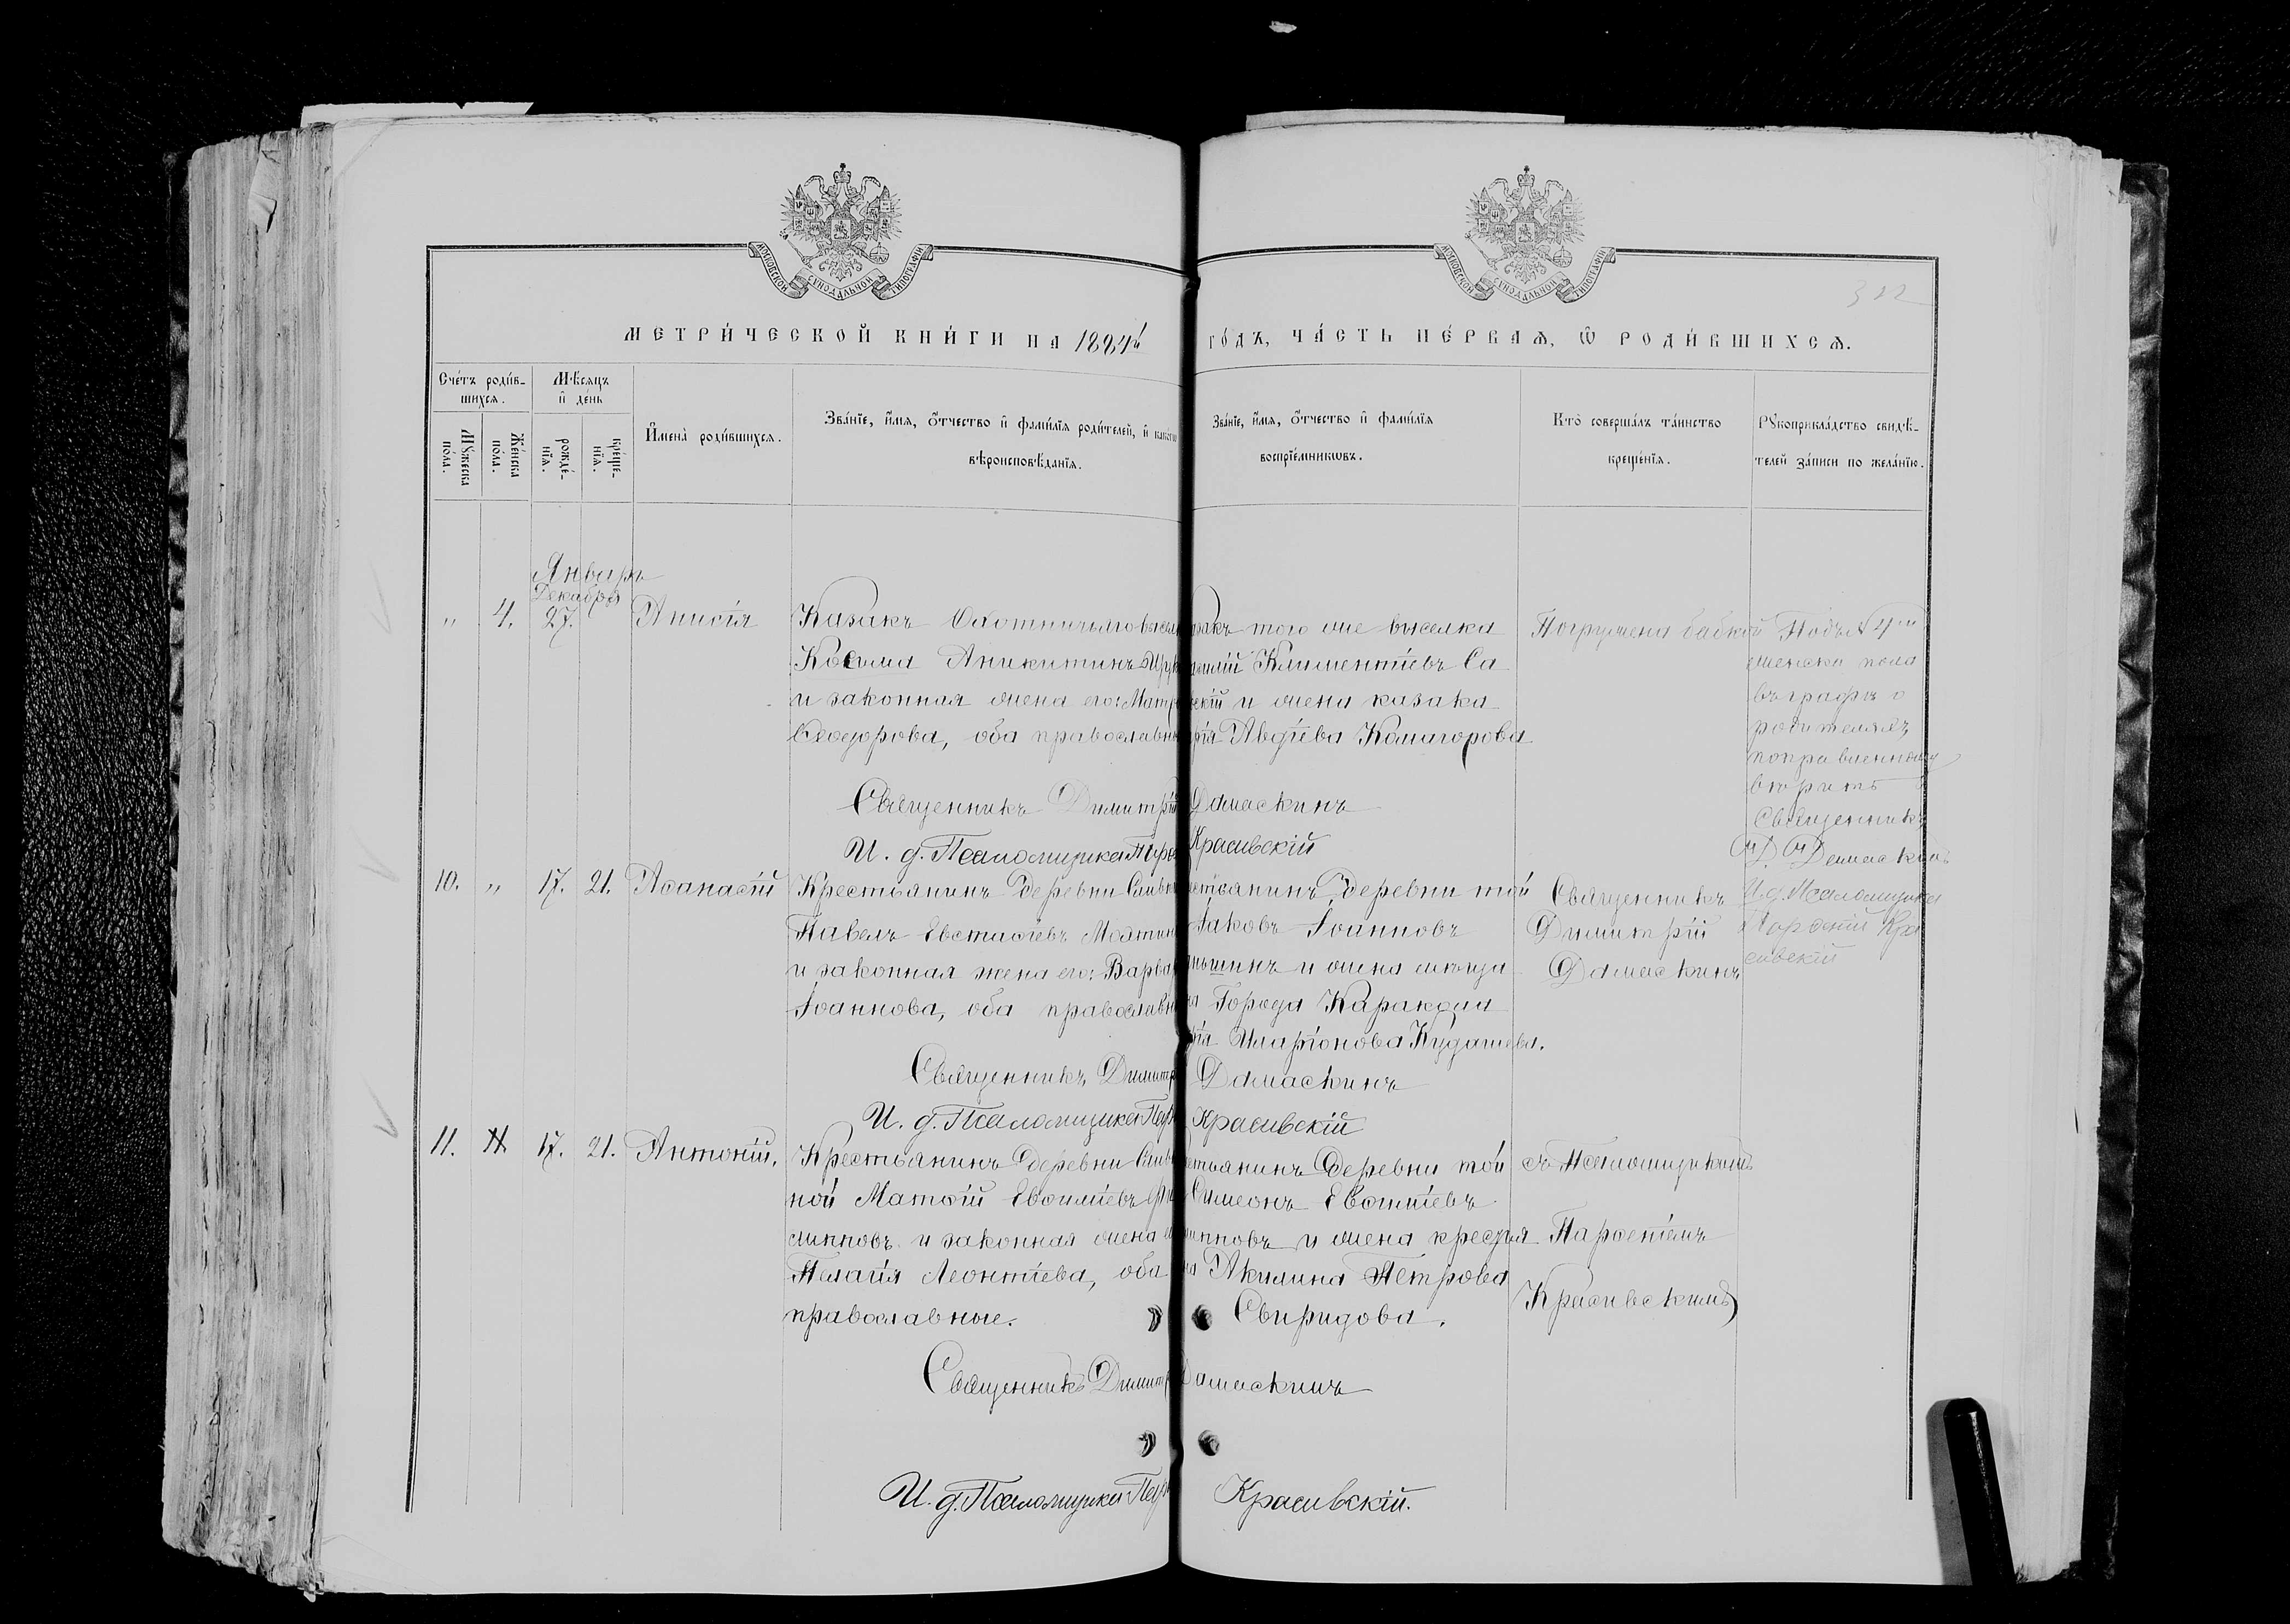 МОСКОВСКОЙ СѴНОДАЛЬНОЙ ТИПОГРАФІИ
МОСКОВСКОЙ СѴНОДАЛЬНОЙ ТИПОГРАФІИ
МЕТРИ́ЧЕСКОЙ КНИ́ГИ НА 1884й ГО́ДЪ, ЧА́СТЬ ПЕ́РВАЯ, Ѿ РОДИ́ВШИХСЯ.
Сче́тъ роди́в-
шихся.
Мѣ́сяцъ
и҆ де́нь
Мꙋ́жеска
по́ла.
Же́нска
по́ла.
рожде́-
нїя.
креще́-
нїя.
И҆мена̀ роди́вшихся.
Зва́нїе, и҆́мя, ѻ҆́тчество и҆ фами́лїя роди́телей, и҆ како́гѡ
вѣроисповѣ́данїя.
Зва́нїе, и҆́мя, ѻ҆́тчество и҆ фами́лїя
воспрїе́мникѡвъ.
Кто̀ соверша́лъ та́инство
креще́нїя.
Рꙋкоприкла́дство свидѣ́-
телей за́писи по жела́нїю.
Январь
Декабря
" 4. 27. Анисія
Казакъ Охотничьяго высел
Косьма Аникитинъ
и законная жена его: Матр
Ѳеодорова, оба православн
того же выселка
Климентіевъ Са
и жена казака
Авдіева Комагорова
Погружена бабкой
Подъ №4мъ
женска пола
въ графѣ о
родителяхъ
поправленному
вѣрить
Священникъ
Дамаскинъ
И.д. Псаломщика
Парѳеній Кра
сивскій
Священникъ Димитрій Дамаскинъ
И. д. Псаломщика Парѳ Красивскій
10. " 17. 21. Аѳанасій
Крестьянинъ деревни Сливк
Павелъ Евстаѳіевъ
и законная жена его: Варва
Іоаннова, оба православн
деревни той
Іаковъ Іоанновъ
и жена
Города Каракола
Иларіонова Кудашева.
Священникъ
Димитрій
Дамаскинъ
Священникъ Димитр Дамаскинъ
И. д. Псаломщика Парѳ Красивскій
11. " 17. 21. Антоній.
Крестьянинъ деревни Сливк
ной Матѳій Евѳиміевъ Фи
липповъ и законная жена
Пелагія Леонтіева, оба
православные.
деревни той
Симеонъ Евѳиміевъ
и жена крестья
Акилина Петрова
Свиридова.
съ Псаломщикомъ
Парѳеніемъ
Красивскимъ
Священникъ Димитр Дамаскинъ
И. д. Псаломщика Парѳ Красивскій.